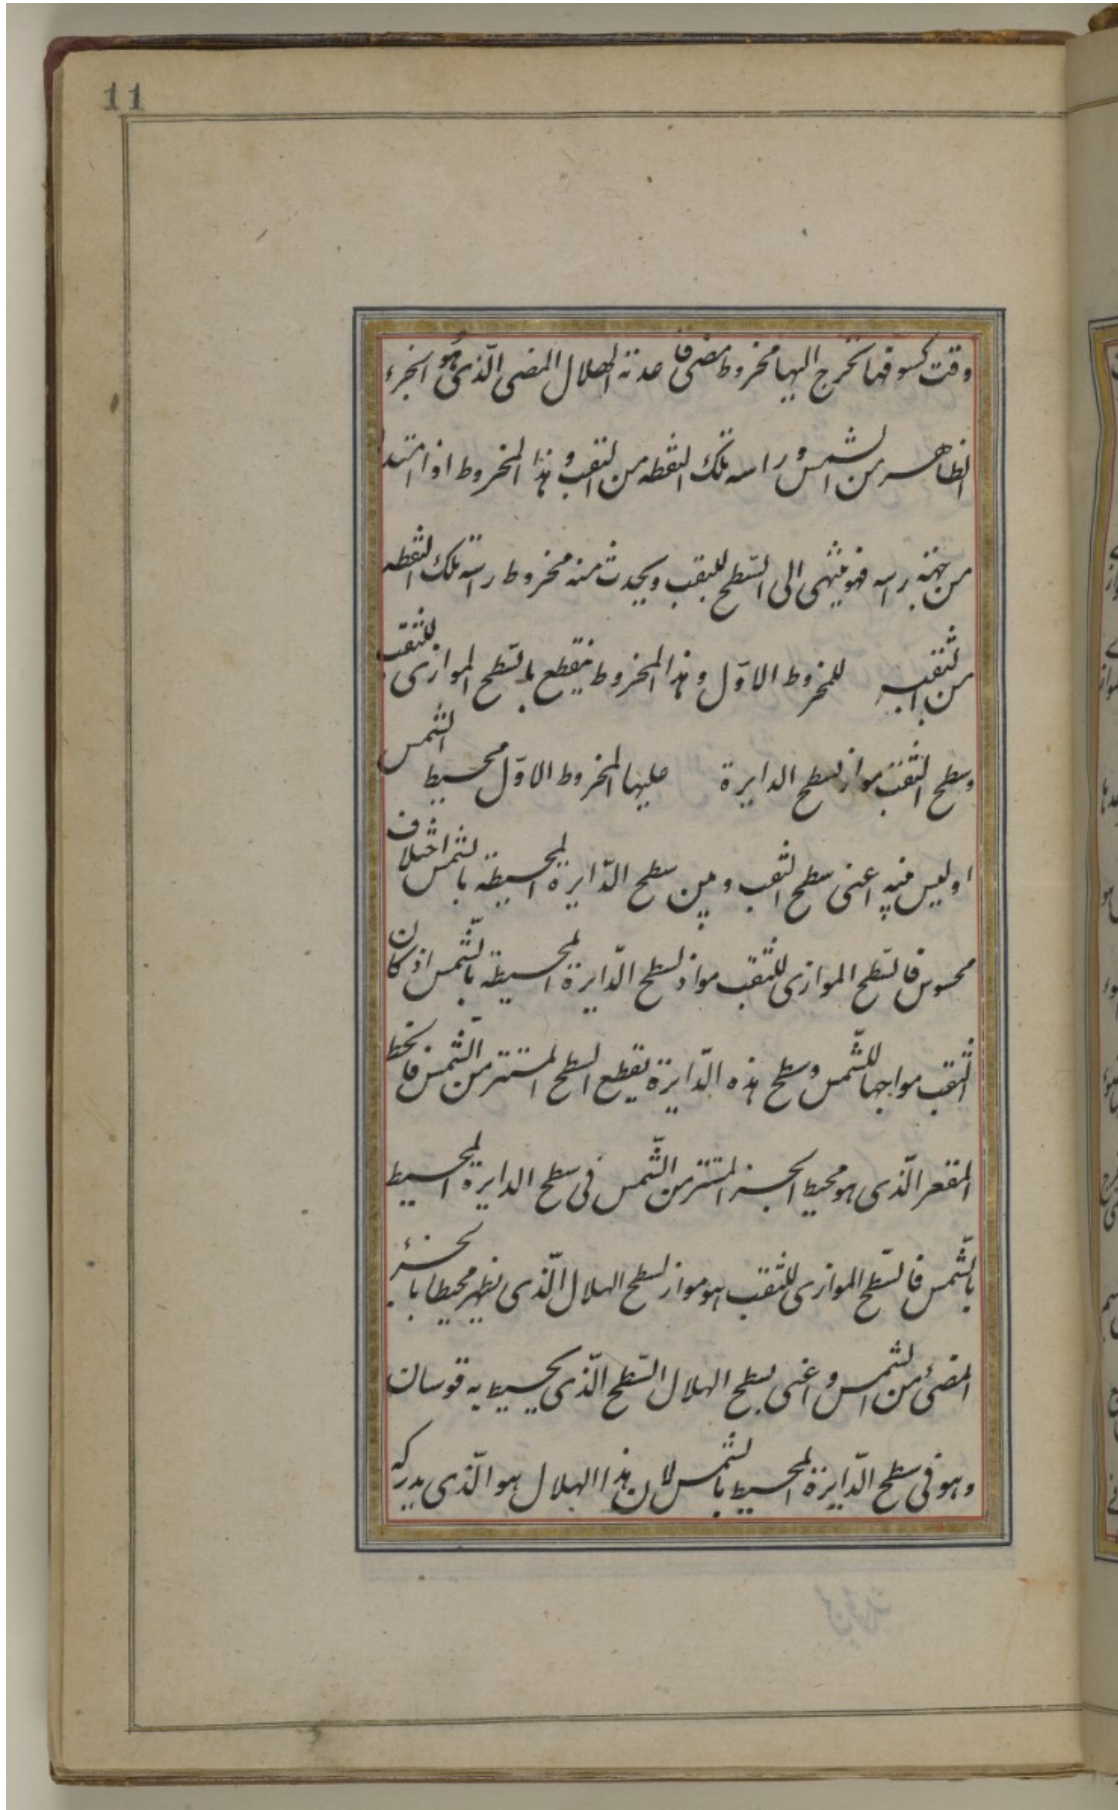 11
وقت كسوفها تخرج اليها مخروط مضى قاعدته الهلال المضى الّذى هُو الجزء
الظاهر من الشمس و راسه تلك النقطه من الثقب و هذا المخروط اذا امتد
من جهته راسه فهو ينتهى الى السّطح للثقب ويحدث منه مخروط راسه تلك النقطه
من الثقب للمخروط الاوّل و هذا المخروط ينقطع بالسّطح الموازى للثقب
وسطح الثقب مواز لسطح الدايرة عليها المخروط الاوّل محيط الشمس
او ليس فيه اعنى سطح الثقب و بين سطح الدّايرة المحيطة بالشمس اختلاف
محسوس فالسّطح الموازى للثقب مواز لسطح الدّايرة المحيطة بالشّمس اذ كان
الثقب مواجها للشّمس وسطح هذه الدّايرة يقطع السطح المستتر من الشّمس فالخط
المقعر الّذى هو محيط الجزء المستتر من الشّمس فى سطح الدايرة المحيط
بالشّمس فالسّطح الموازى للثقب هو مواز لسطح الهلال الّذى يظهر محيطا بالجزء
المضئ من الشمس و اعنى بسطح الهلال السّطح الّذى يحيط به قوسان
وهو فى سطح الدّايرة المحيط بالشمس لان هذا الهلال هو الّذى يدركه